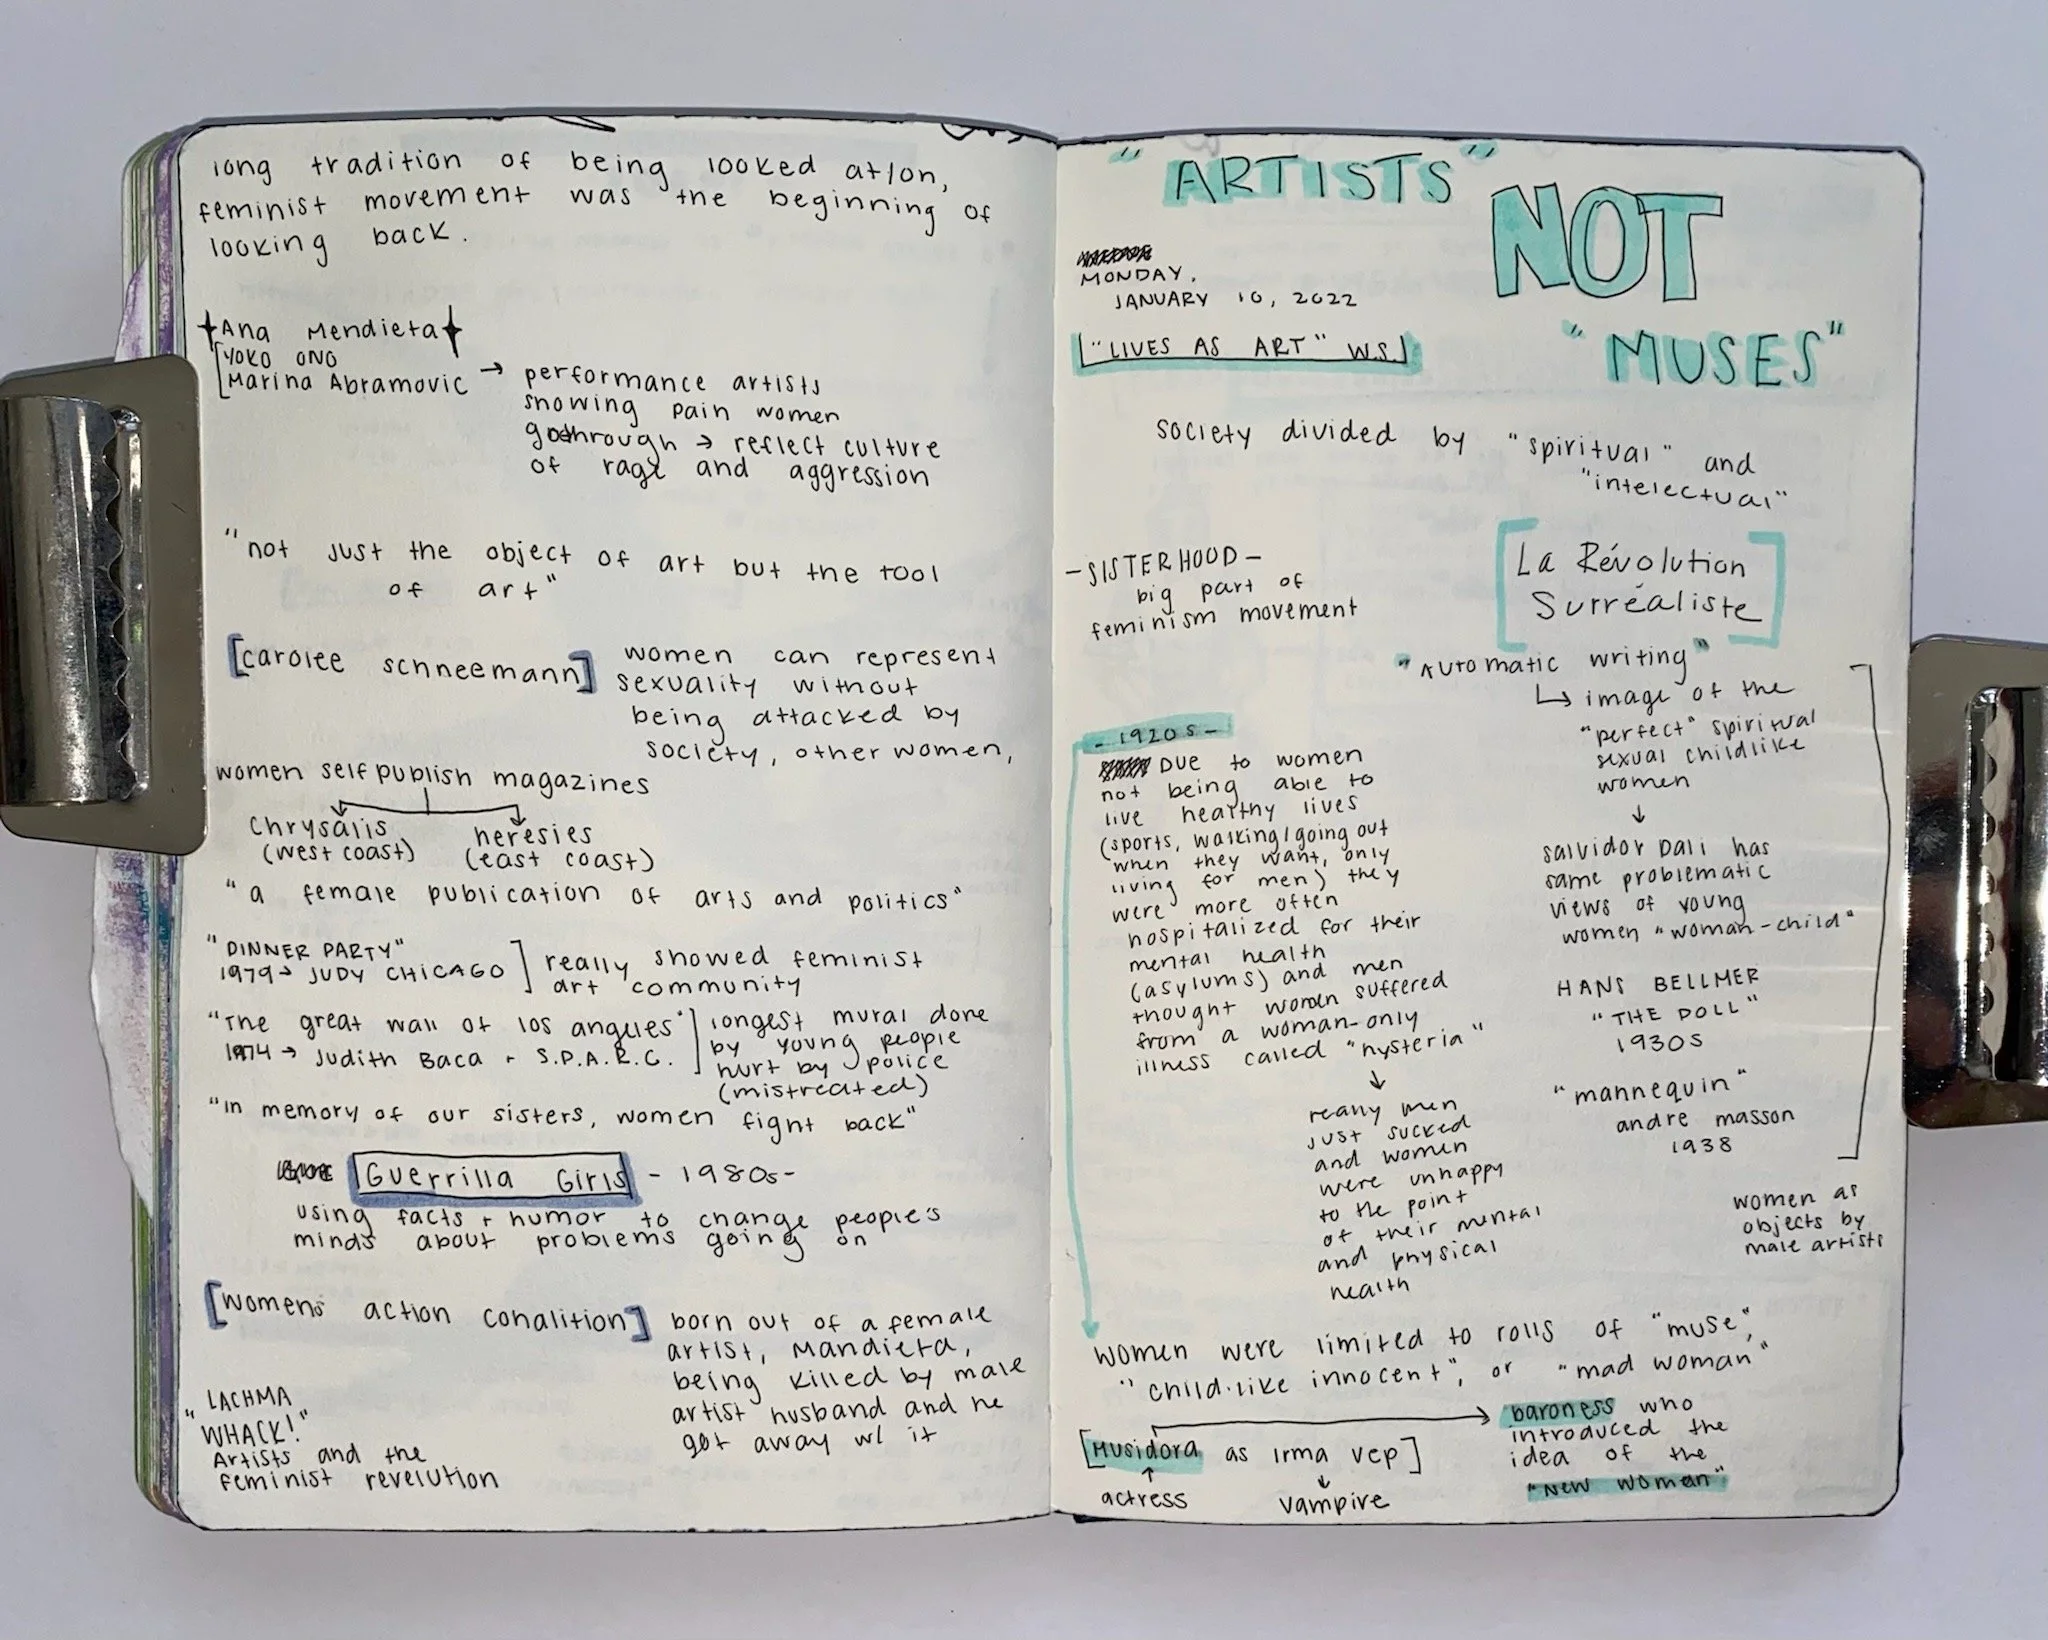 long tradition of being looked at/on,
feminist movement was the beginning of
looking back.
Ana Mendieta
YOKO ONO
Marina Abramovic → performance artists
showing pain women
go through → reflect culture
of rage and aggression
"not just the object of art but the tool
of art"
[carolee schneemann] women can represent
sexuality without
being attacked by
society, other women,
women self publish magazines
Chrysalis
(west coast)
heresies
(east coast)
"a female publication of arts and politics"
"DINNER PARTY"
1979 → JUDY CHICAGO
really showed feminist
art community
"The great wall of los angles"
1974 → Judith Baca + S.P.A.R.C.
longest mural done
by young people
hurt by police
(mistreated)
"In memory of our sisters, women fight back"
Guerrilla Girls - 1980s -
using facts + humor to change people's
minds about problems going on
[womens action conalition] born out of a female
artist, Mandieta,
being killed by male
artist husband and he
got away w/ it
LACHMA
"WHACK!"
Artists and the
feminist revelution
"ARTISTS"
NOT
"MUSES"
MONDAY,
JANUARY 10, 2022
["LIVES AS ART" W.S.]
society divided by "spiritual" and
"intelectual"
- SISTERHOOD -
big part of
feminism movement
[La Révolution
Surréaliste]
"Automatic writing"
↳ image of the
"perfect" spiritual
sexual childlike
women
↓
salvidor Dali has
same problematic
views of young
women "woman-child"
HANS BELLMER
"THE DOLL"
1930S
"mannequin"
andre masson
1938
women as
objects by
male artists
- 1920s -
Due to women
not being able to
live healthy lives
(sports, walking/going out
when they want, only
living for men) they
were more often
hospitalized for their
mental health
(asylums) and men
thought women suffered
from a woman-only
illness called "hysteria"
↓
really men
just sucked
and women
were unhappy
to the point
of their mental
and physical
health
women were limited to rolls of "muse",
"child-like innocent", or "mad woman"
[Musidora as Irma vep]
↑
actress
↓
vampire
baroness who
introduced the
idea of the
"New woman"